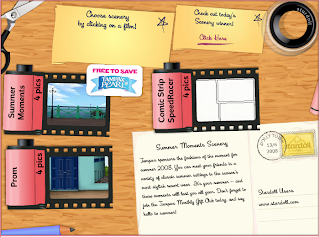 Choose scenery
by clicking on a film!
Check out today's
Scenery winner!
Click Here
stardoll
FREE TO SAVE
TAMPAX
PEARL
Summer
Moments
4 pics
Comic Strip
SpeedRacer
4 pics
Prom
4 pics
Summer Moments Scenery
Tampax sponsors the fashions of the moment for
summer 2008. You can meet your friends in a
variety of classic summer settings to the season's
most stylish resort wear. It's your summer – and
these moments will last you all year. Don't forget to
join the Tampax Monthly Gift Club today and say
hello to summer!
2008
stardoll
Stardoll Users
www.stardoll.com